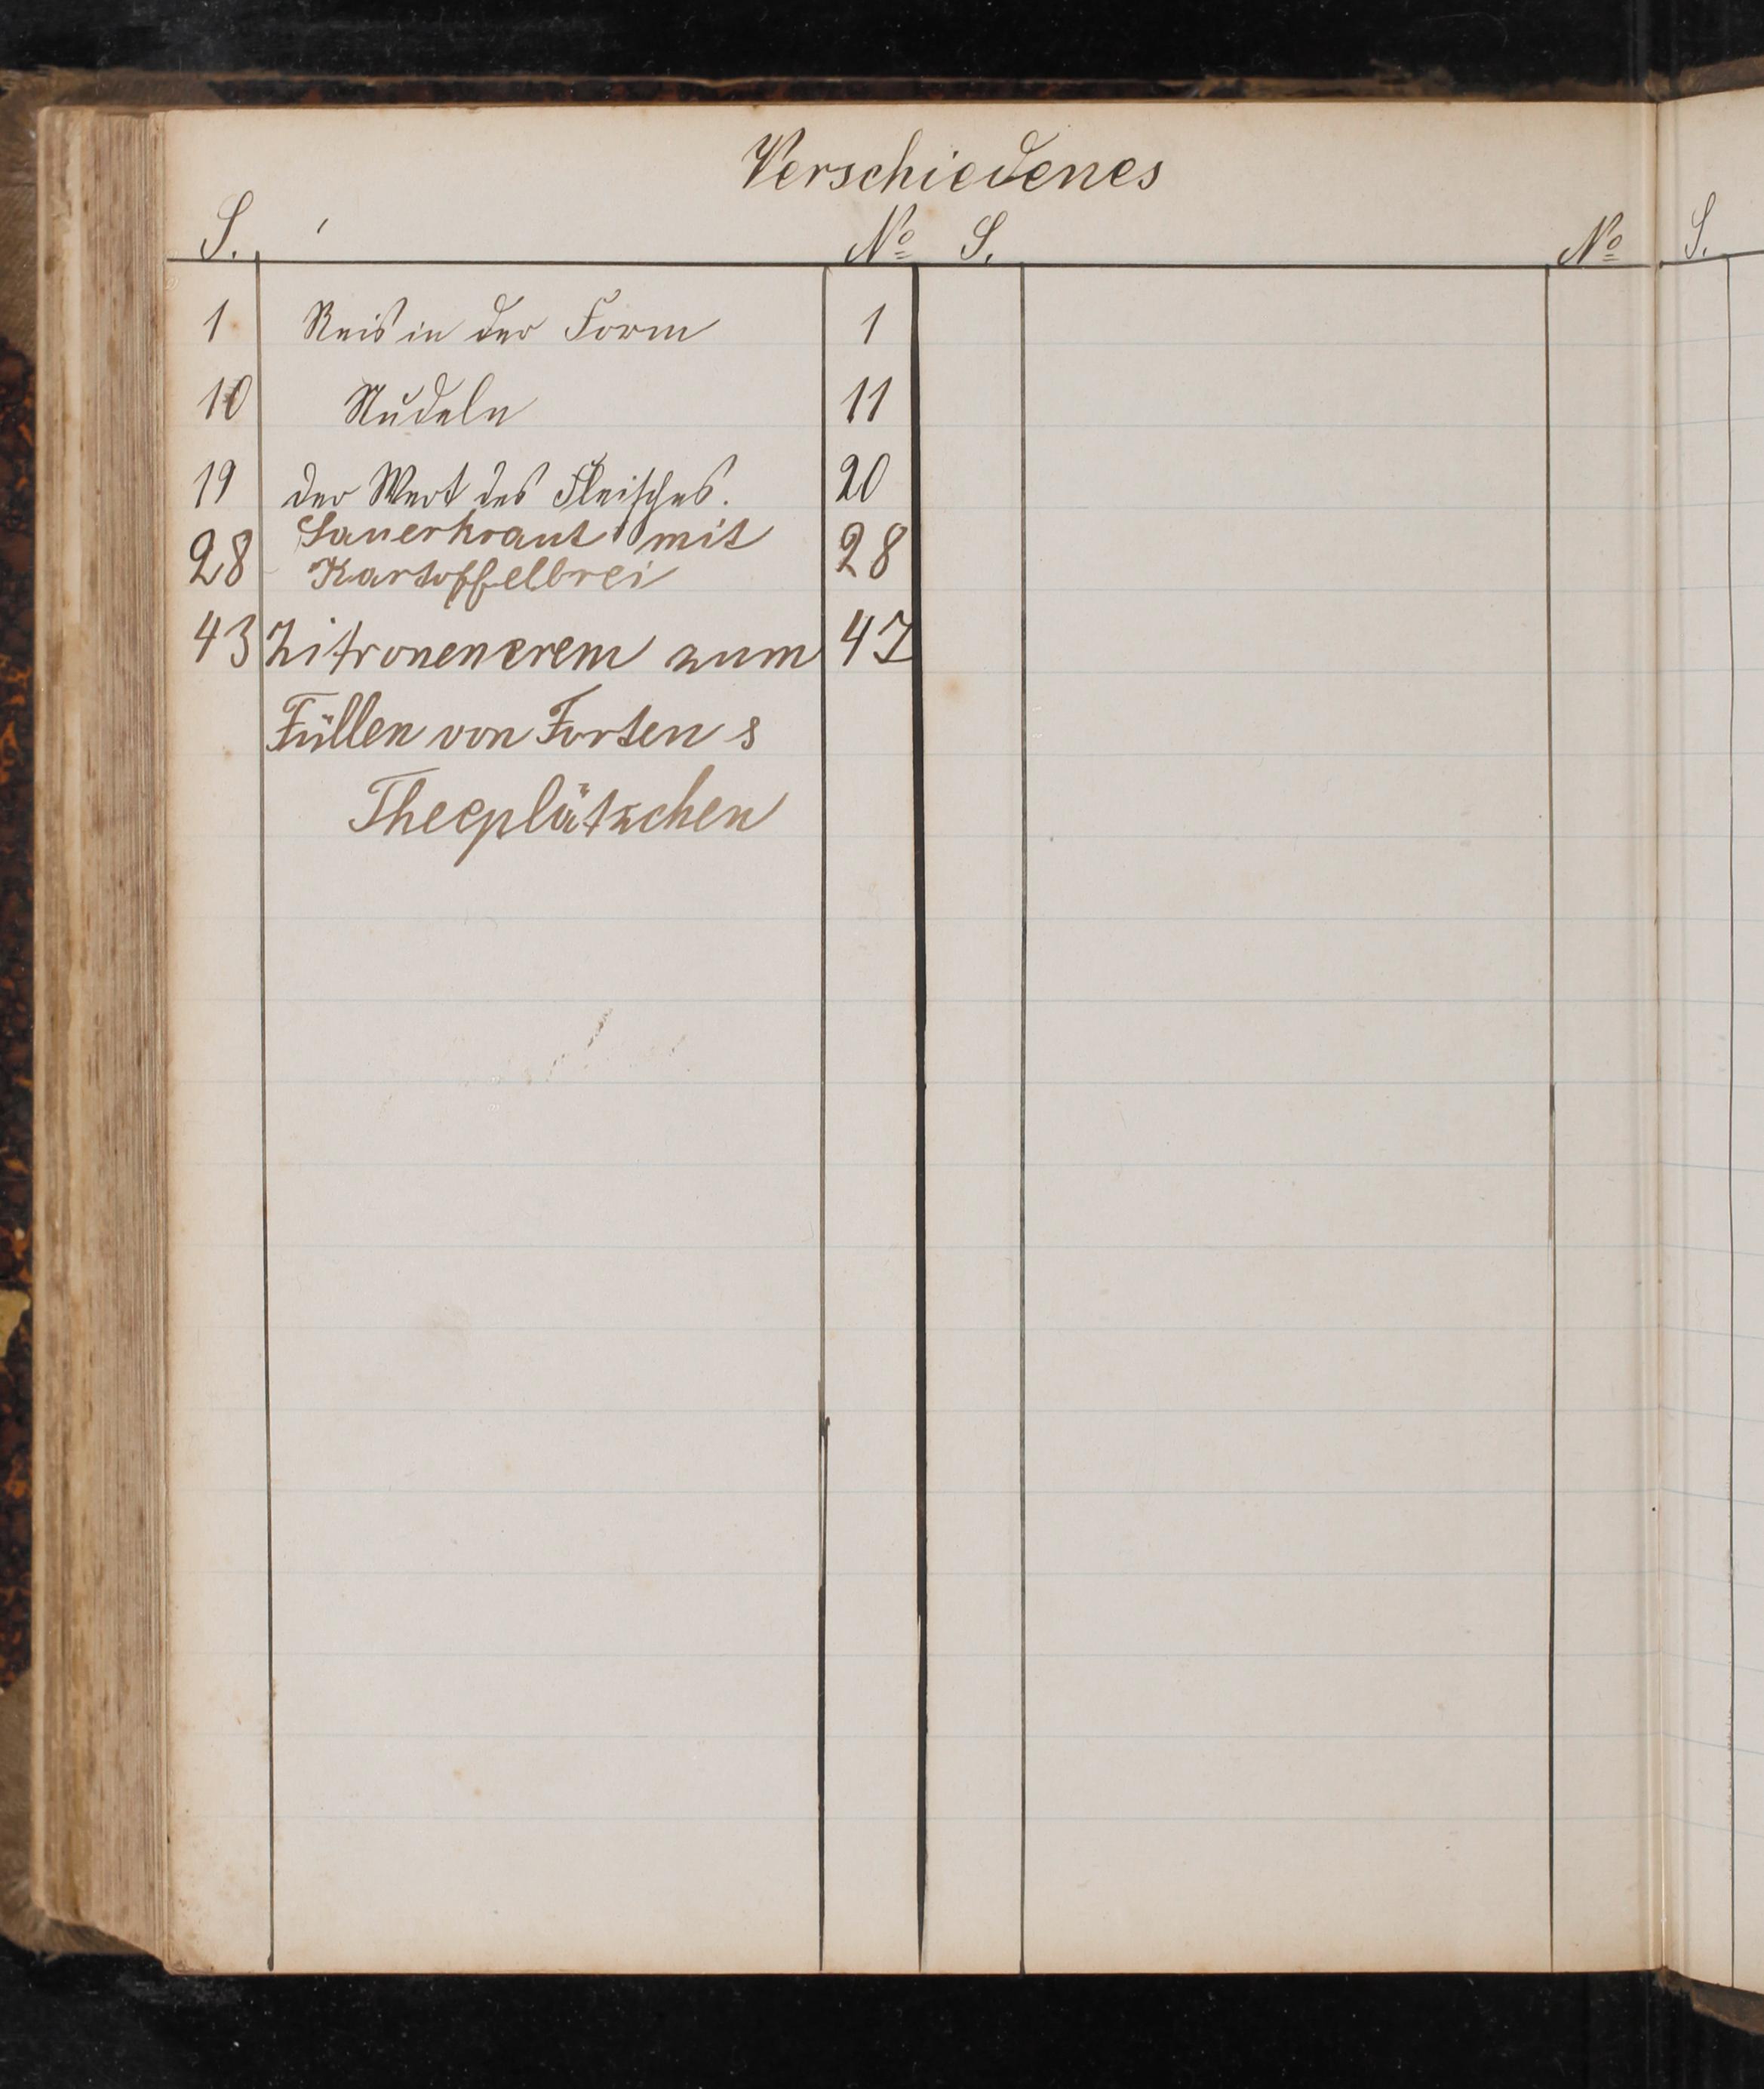 Verschiedenes
S. No S. No S.
1 Reis in der Form 1
10 Nudeln 11
19 der Wert des Fleisches. 20
Sauerkraut mit
28 Kartoffelbrei 28
43 Zitronencrem zum 47
Füllen von Torten s
Theeplätzchen